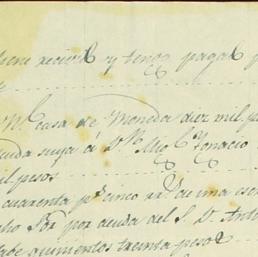 tiene recivid y tengo pagad p
Rl. casa de Moneda diez mil p
euda suya á Dn. Migl. Ygnacio
il pesos
cuarenta ps. cinco rrs. de una esc
ho Sor. por deuda del S. D. Anto
tabe quinientos treinta pesos